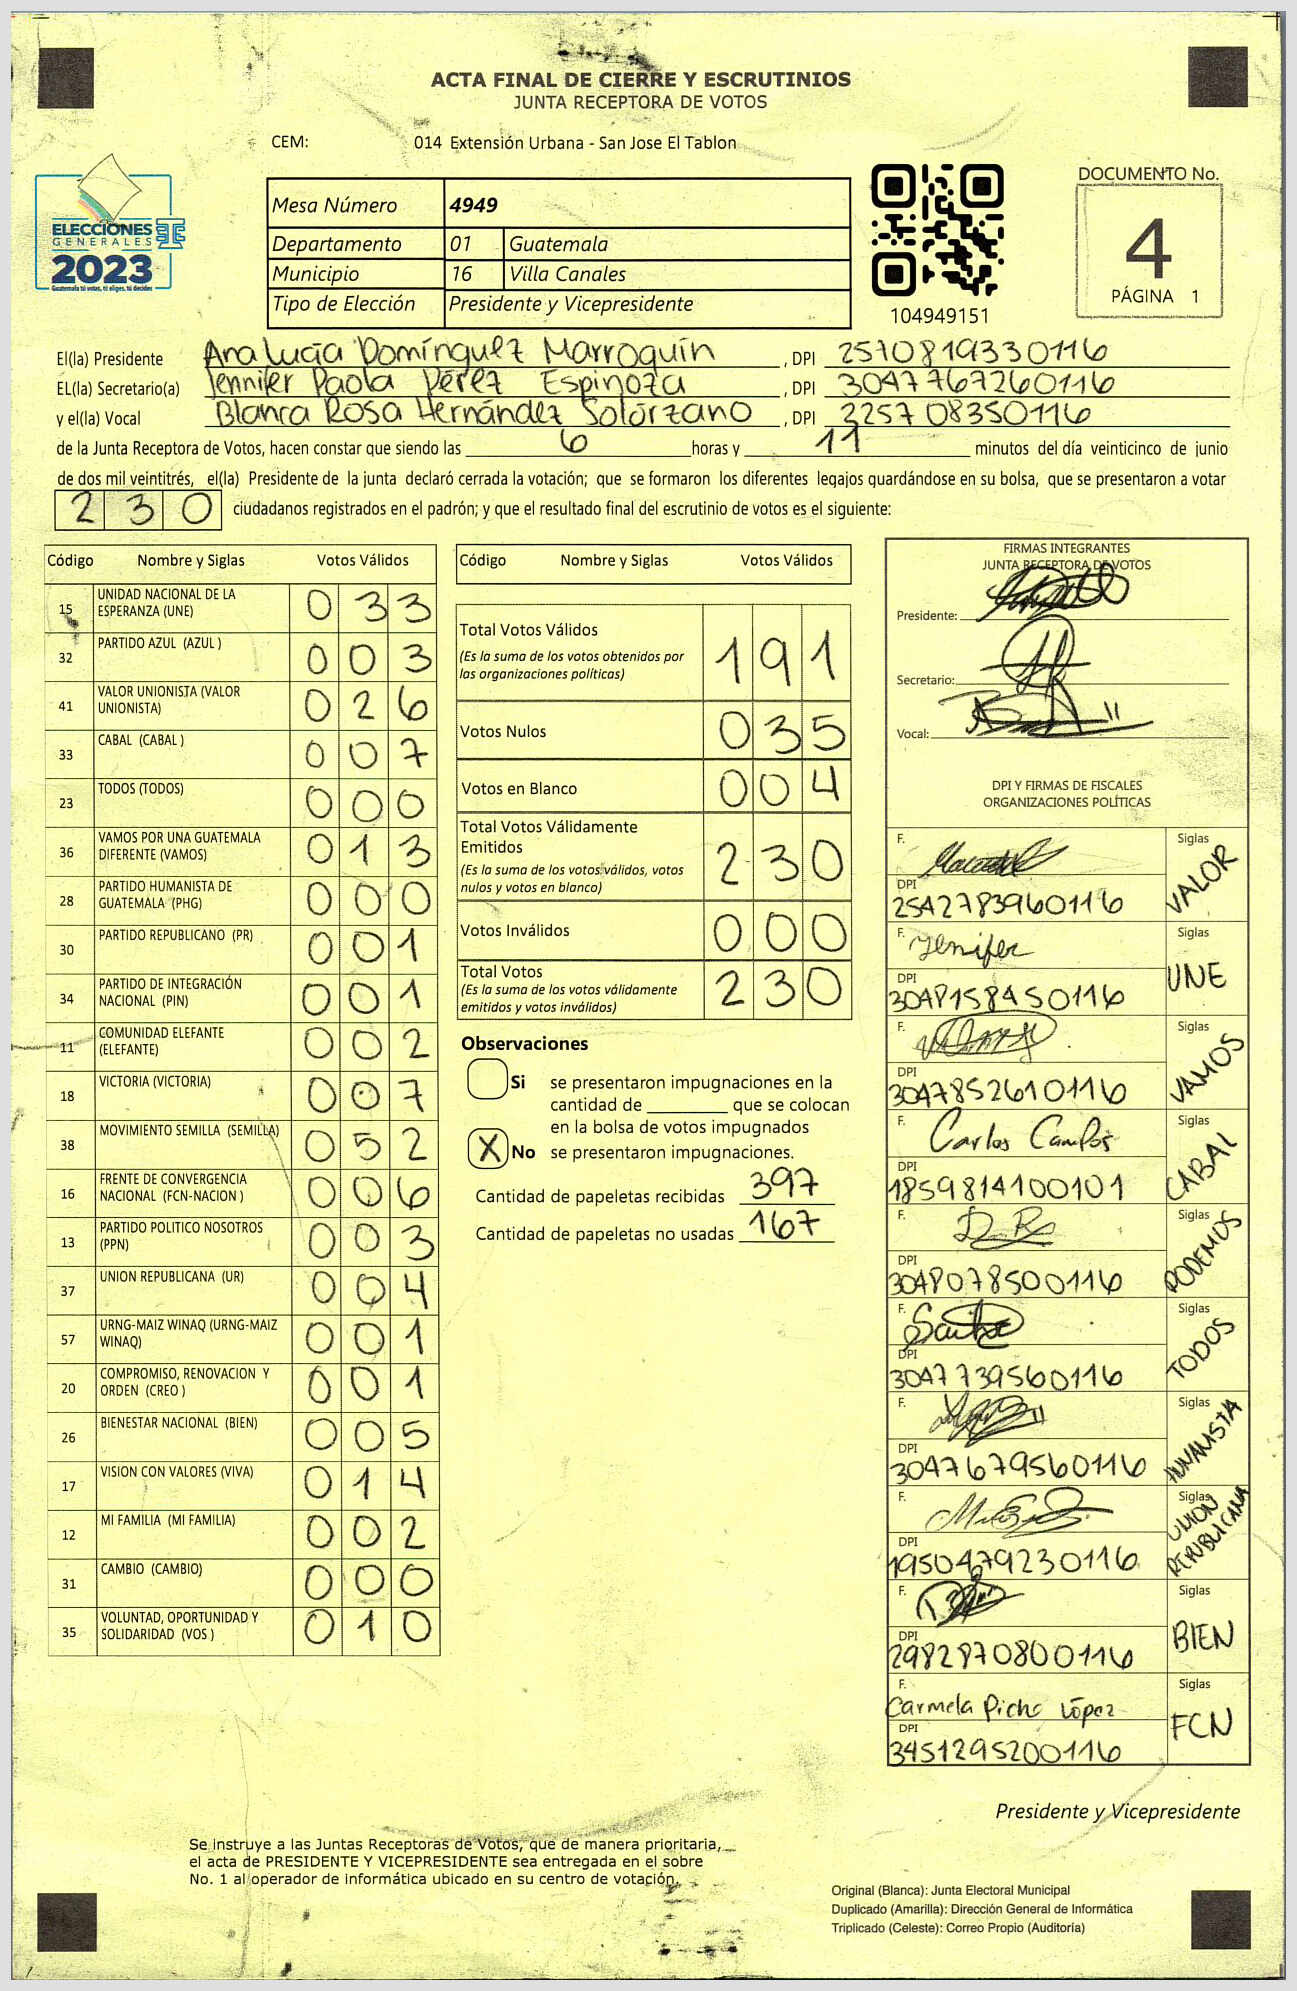 ACTA FINAL DE CIERRE Y ESCRUTINIOS
JUNTA RECEPTORA DE VOTOS
CEM: 014 Extensión Urbana - San Jose El Tablon
ELECCIONES
GENERALES
2023
Guatemala tú votas, tú eliges, tú decides
Mesa Número 4949
Departamento 01 Guatemala
Municipio 16 Villa Canales
Tipo de Elección Presidente y Vicepresidente
104949151
DOCUMENTO No.
4
PÁGINA 1
El(la) Presidente Ana Lucía Domínguez Marroquín, DPI 2570819330116
EL(la) Secretario(a) Jennifer Paola Pérez Espinoza, DPI 3047767260116
y el(la) Vocal Blanca Rosa Hernández Solórzano, DPI 225708350116
de la Junta Receptora de Votos, hacen constar que siendo las 6 horas y 11 minutos del día veinticinco de junio
de dos mil veintitrés, el(la) Presidente de la junta declaró cerrada la votación; que se formaron los diferentes legajos guardándose en su bolsa, que se presentaron a votar
230 ciudadanos registrados en el padrón; y que el resultado final del escrutinio de votos es el siguiente:
Código Nombre y Siglas Votos Válidos
15 UNIDAD NACIONAL DE LA ESPERANZA (UNE) 033
32 PARTIDO AZUL (AZUL ) 003
41 VALOR UNIONISTA (VALOR UNIONISTA) 026
33 CABAL (CABAL ) 007
23 TODOS (TODOS) 000
36 VAMOS POR UNA GUATEMALA DIFERENTE (VAMOS) 013
28 PARTIDO HUMANISTA DE GUATEMALA (PHG) 000
30 PARTIDO REPUBLICANO (PR) 001
34 PARTIDO DE INTEGRACIÓN NACIONAL (PIN) 001
11 COMUNIDAD ELEFANTE (ELEFANTE) 002
18 VICTORIA (VICTORIA) 007
38 MOVIMIENTO SEMILLA (SEMILLA) 052
16 FRENTE DE CONVERGENCIA NACIONAL (FCN-NACION ) 006
13 PARTIDO POLITICO NOSOTROS (PPN) 003
37 UNION REPUBLICANA (UR) 004
57 URNG-MAIZ WINAQ (URNG-MAIZ WINAQ) 001
20 COMPROMISO, RENOVACION Y ORDEN (CREO ) 001
26 BIENESTAR NACIONAL (BIEN) 005
17 VISION CON VALORES (VIVA) 014
12 MI FAMILIA (MI FAMILIA) 002
31 CAMBIO (CAMBIO) 000
35 VOLUNTAD, OPORTUNIDAD Y SOLIDARIDAD (VOS ) 010
Código Nombre y Siglas Votos Válidos
Total Votos Válidos 191
(Es la suma de los votos obtenidos por
las organizaciones políticas)
Votos Nulos 035
Votos en Blanco 004
Total Votos Válidamente
Emitidos 230
(Es la suma de los votos válidos, votos
nulos y votos en blanco)
Votos Inválidos 000
Total Votos 230
(Es la suma de los votos válidamente
emitidos y votos inválidos)
Observaciones
Si se presentaron impugnaciones en la
cantidad de ________ que se colocan
en la bolsa de votos impugnados
X No se presentaron impugnaciones.
Cantidad de papeletas recibidas 397
Cantidad de papeletas no usadas 167
FIRMAS INTEGRANTES
JUNTA RECEPTORA DE VOTOS
Presidente:
Secretario:
Vocal:
DPI Y FIRMAS DE FISCALES
ORGANIZACIONES POLÍTICAS
F. Siglas VALOR
DPI 2542783960116
F. Jenifer Siglas UNE
DPI 3048158450116
F. Siglas VAMOS
DPI 3047852610116
F. Carlos Campos Siglas CABAL
DPI 1859814100101
F. Siglas PODEMOS
DPI 3048078500116
F. Siglas TODOS
DPI 3047739560116
F. Siglas
DPI 3047679560116
F. Siglas UNION REPUBLICANA
DPI 1950479230116
F. Siglas BIEN
DPI 2982870800116
F. Carmela Piche López Siglas FCN
DPI 3451295200116
Presidente y Vicepresidente
Se instruye a las Juntas Receptoras de Votos, que de manera prioritaria,
el acta de PRESIDENTE Y VICEPRESIDENTE sea entregada en el sobre
No. 1 al operador de informática ubicado en su centro de votación.
Original (Blanca): Junta Electoral Municipal
Duplicado (Amarilla): Dirección General de Informática
Triplicado (Celeste): Correo Propio (Auditoría)